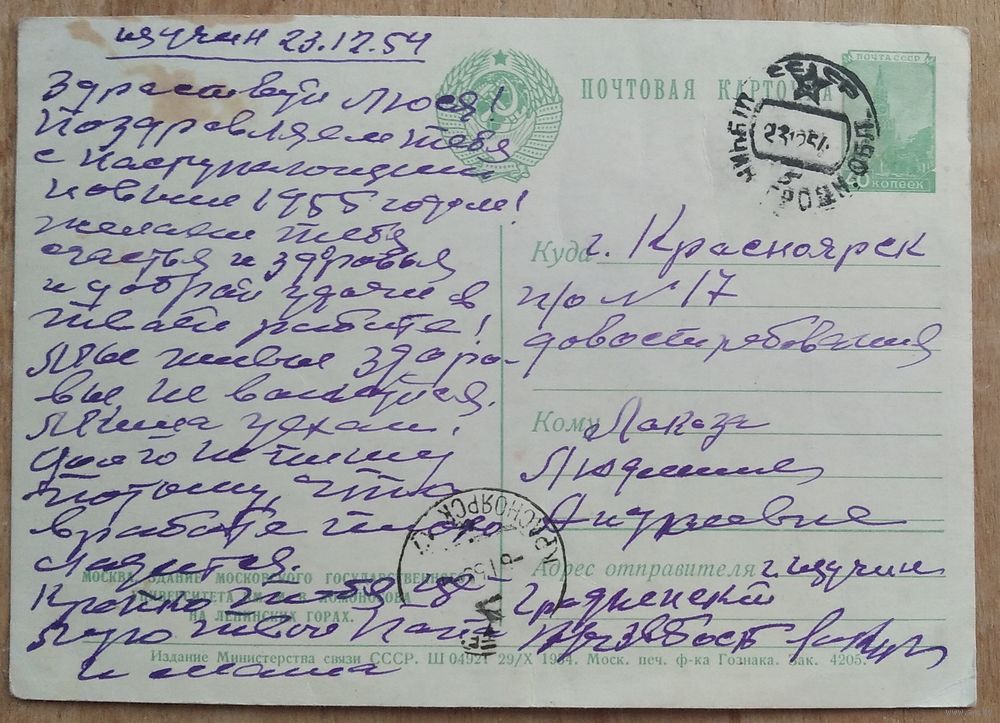 Щучин 23.12.54
Здравствуй Люся!
Поздравляем тебя
с наступающим
новым 1955 годом!
желаем тебе
счастья и здоровья
и доброй удачи в
твоей работе!
Мы живы здоро-
вы не волнуйся.
Миша уехал!
не пишу
потому, что
в работе
ладится.
Крепко
твой папа
и мама
ПОЧТОВАЯ КАРТОЧКА
ПОЧТА СССР
КОПЕЕК
СССР
23 12 54
Куда г. Красноярск
п/о № 17
до востребования
Кому Лакоза
Людмиле
Андреевне
КРАСНОЯРСК
Адрес отправителя г. Щучин
Гродненской
МОСКВА. ЗДАНИЕ МОСКОВСКОГО ГОСУДАРСТВЕННОГО
УНИВЕРСИТЕТА ИМ. М. В. ЛОМОНОСОВА
НА ЛЕНИНСКИХ ГОРАХ.
Издание Министерства связи СССР. Ш 04921 29/X 1954. Моск. печ. ф-ка Гознака. Зак. 4205.